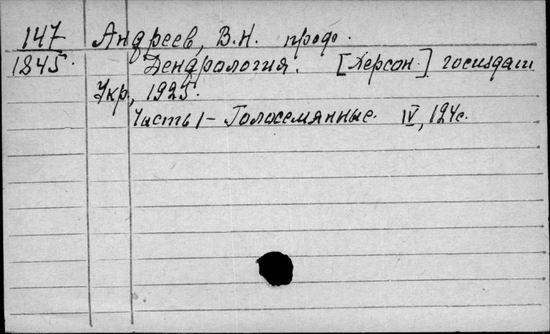 147 Андреев, В.Н. проф.
1845. Дендрология. [Херсон.] госиздат
Укр., 1925.
Часть 1 - Голосемянные. IV, 124с.